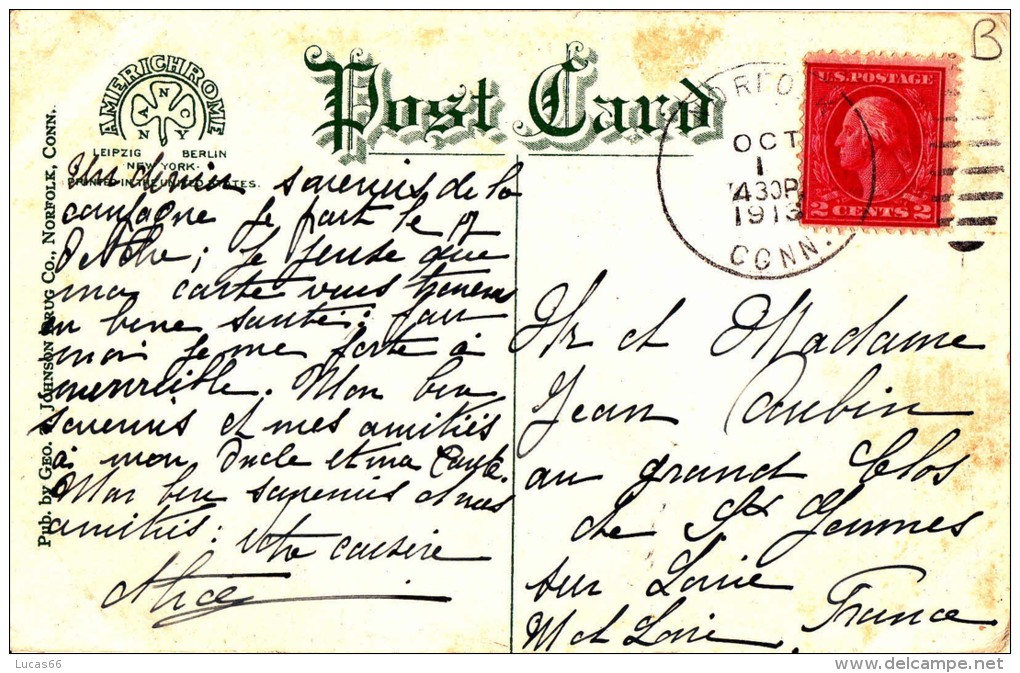 Post Card
B
AMERICHROME
ANCO
NY
LEIPZIG BERLIN
NEW YORK.
PRINTED IN THE UNITED STATES.
Pub. by Geo. Johnson Drug Co., Norfolk, Conn.
NORFOLK
OCT
1
430P
1913
CONN.
U.S. POSTAGE
2 CENTS 2
Un dernier souvenirs de la
campagne je part le 17
Octobre; je pense que
ma carte vous trouvera
en bone santé:
moi je me porte à
merveille. Mon bon
souvenirs et mes amitiés
à mon Oncle et ma Tante.
Mon bon souvenirs et mes
amitiés: votre cousine
Alice
Mr et Madame
Jean Aubin
au grand Clos
de St Gemmes
sur Loire
M et Loire. France
Lucas66
www.delcampe.net